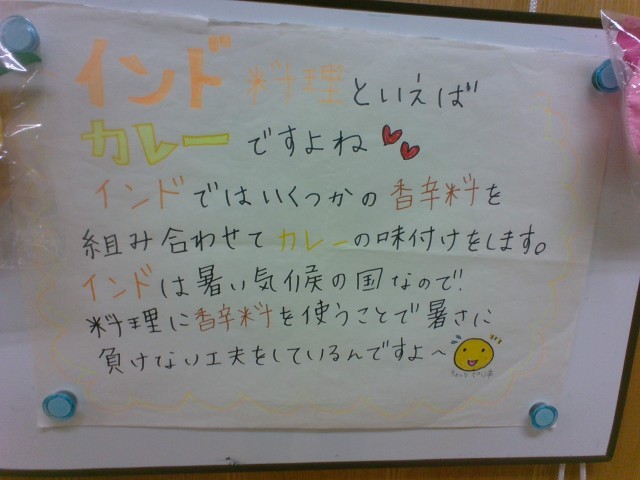 インド料理といえば
カレーですよね
インドではいくつかの香辛料を
組み合わせてカレーの味付けをします。
インドは暑い気候の国なので!
料理に香辛料を使うことで暑さに
負けない工夫をしているんですよ〜